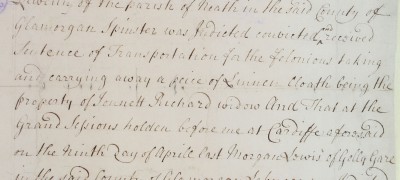 by the parish of Neath in the said County of
Glamorgan Spinster was Indicted convicted and received
Sentence of Transportation for the Felonious taking
and carrying away a peice of Linnen Cloath being the
property of Jennett Richard widow And That at the
Grand Sessions holden before me at Cardiffe aforesaid
on the Ninth Day of Aprill Last Morgan Lewis of Gelly Gare
in the said County of Glamorgan